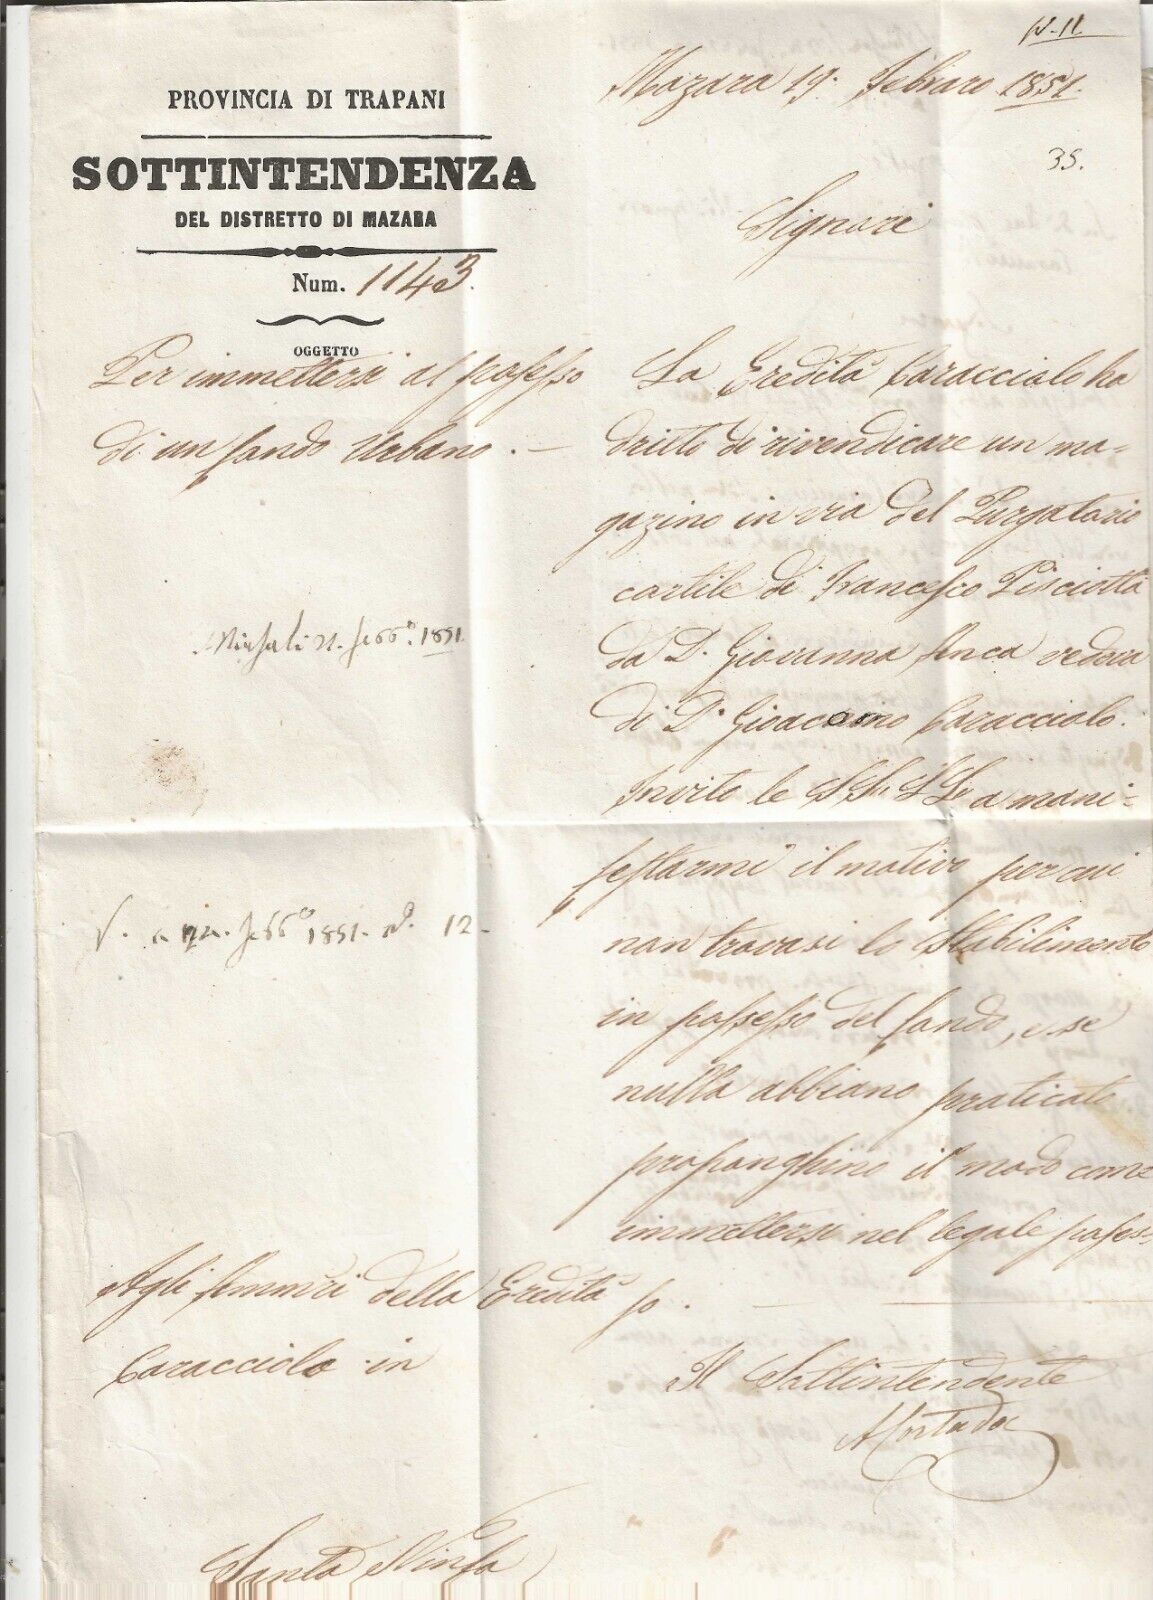 N. 11
PROVINCIA DI TRAPANI
SOTTINTENDENZA
DEL DISTRETTO DI MAZARA
Num. 1143.
OGGETTO
Per immettersi al possesso
di un fondo Urbano. —
Mazara 19. Febraro 1851.
35.
Signori
La Eredità Caracciolo ha
dritto di rivendicare un ma=
gazino in via del Purgatorio
cortile di Francesco Pisciotta
da Da. Giovanna Anca vedova
di Dn. Gioacchino Caracciolo.
Invito le SSrie LLo a mani=
festarmi il motivo per cui
non trovasi lo Stabilimento
in possesso del fondo, e se
nulla abbiano praticato
proponghino il modo come
immettersi nel legale posses=
so. —
Il Sottintendente
21. febbo. 1851.
febbo 1851. No. 12-
Agli Ammri della Eredità
Caracciolo in
Santa Ninfa